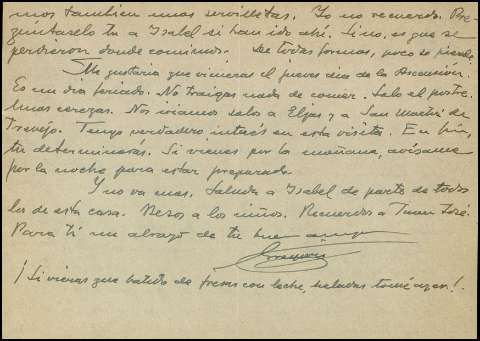 mos tambien unas servilletas. Yo no recuerdo. Pre-
gúntaselo tu a Isabel si han ido ahí. Sino, es que se
perdieron donde comimos. De todas formas, poco se pierde.
Me gustaria que vinieras el jueves dia de la Ascensión.
Es un dia feriado. No traigas nada de comer. Solo el postre.
Unas cerezas. Nos iriamos solo a Eljas y a San Martin de
Trevejo. Tengo verdadero interés en esta visita. En fin,
tu determinarás. Si vienes por la mañana, avísame
por la noche para estar preparado.
Y no va mas. Saluda a Isabel de parte de todos
los de esta casa. Besos a los niños. Recuerdos a Juan José.
Para ti un abrazo de tu buen amigo
¡Si vieras que batido de fresas con leche, heladas tomé ayer!.